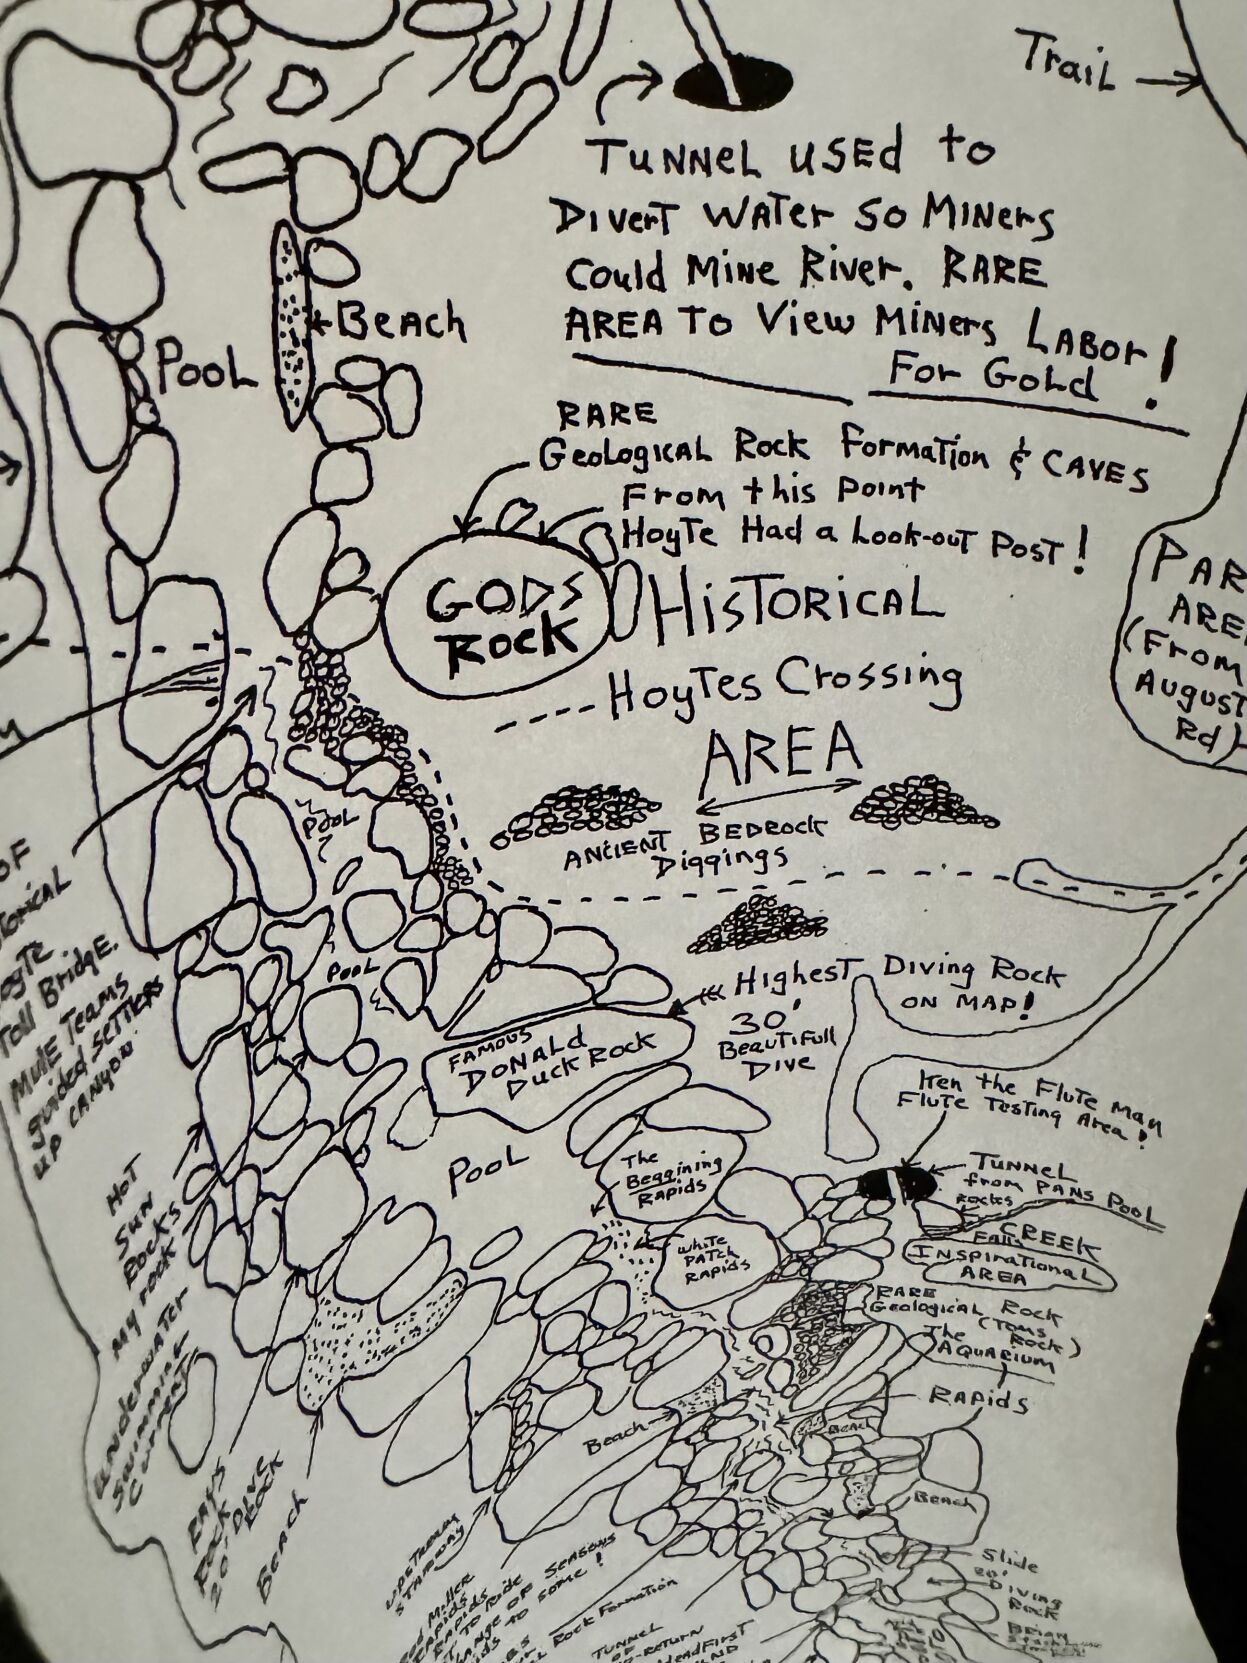 Trail
TUNNEL USEd to
DiverT WATer SO MINers
Could Mine River. RARE
AREA TO View MiNers LABOr!
For GoLd
Beach
PooL
RARE
GeologicAL Rock Formation & CAVES
From this Point
HoyTe Had a Look-out Post!
GODS
Rock
HisTORicAL
HoyTes Crossing
AREA
PAR
AREA
(From
August
Rd)
PooL
ANCIENT BEDROCK
Diggings
OF
Toll Bridge.
Mule Teams
guided SETTLERS
UP CANYON
PooL
HighesT Diving Rock
ON MAP!
30'
BeauTifull
Dive
FAMOUS
DONALd
Duck Rock
Ken the FluTe Man
FluTe TesTing Area!
PooL
The
Beggining
Rapids
TUNNEL
from PANS PooL
Rocks
CREEK
Falls
INspiratioNAL
AREA
White
PATCH
RApids
HOT
SUN
Rocks
My rock
UNderwATer
Swimming
CurrenT
RARE
Geological Rock
(Toms
Rock)
The
AQUARIUM
RApids
Beach
Beach
Beach
RAYS
Rock
20' Dive
Rock
BEACH
UPSTREAM
STAIRWAY
Miller
RAPids
Ride
OF SEASONS
TO SOME!
Rock FormatioN
TUNNEL
OF
-RETURN
HeadFirsT
Slide
20'
DiViNg
Rock
BriAN